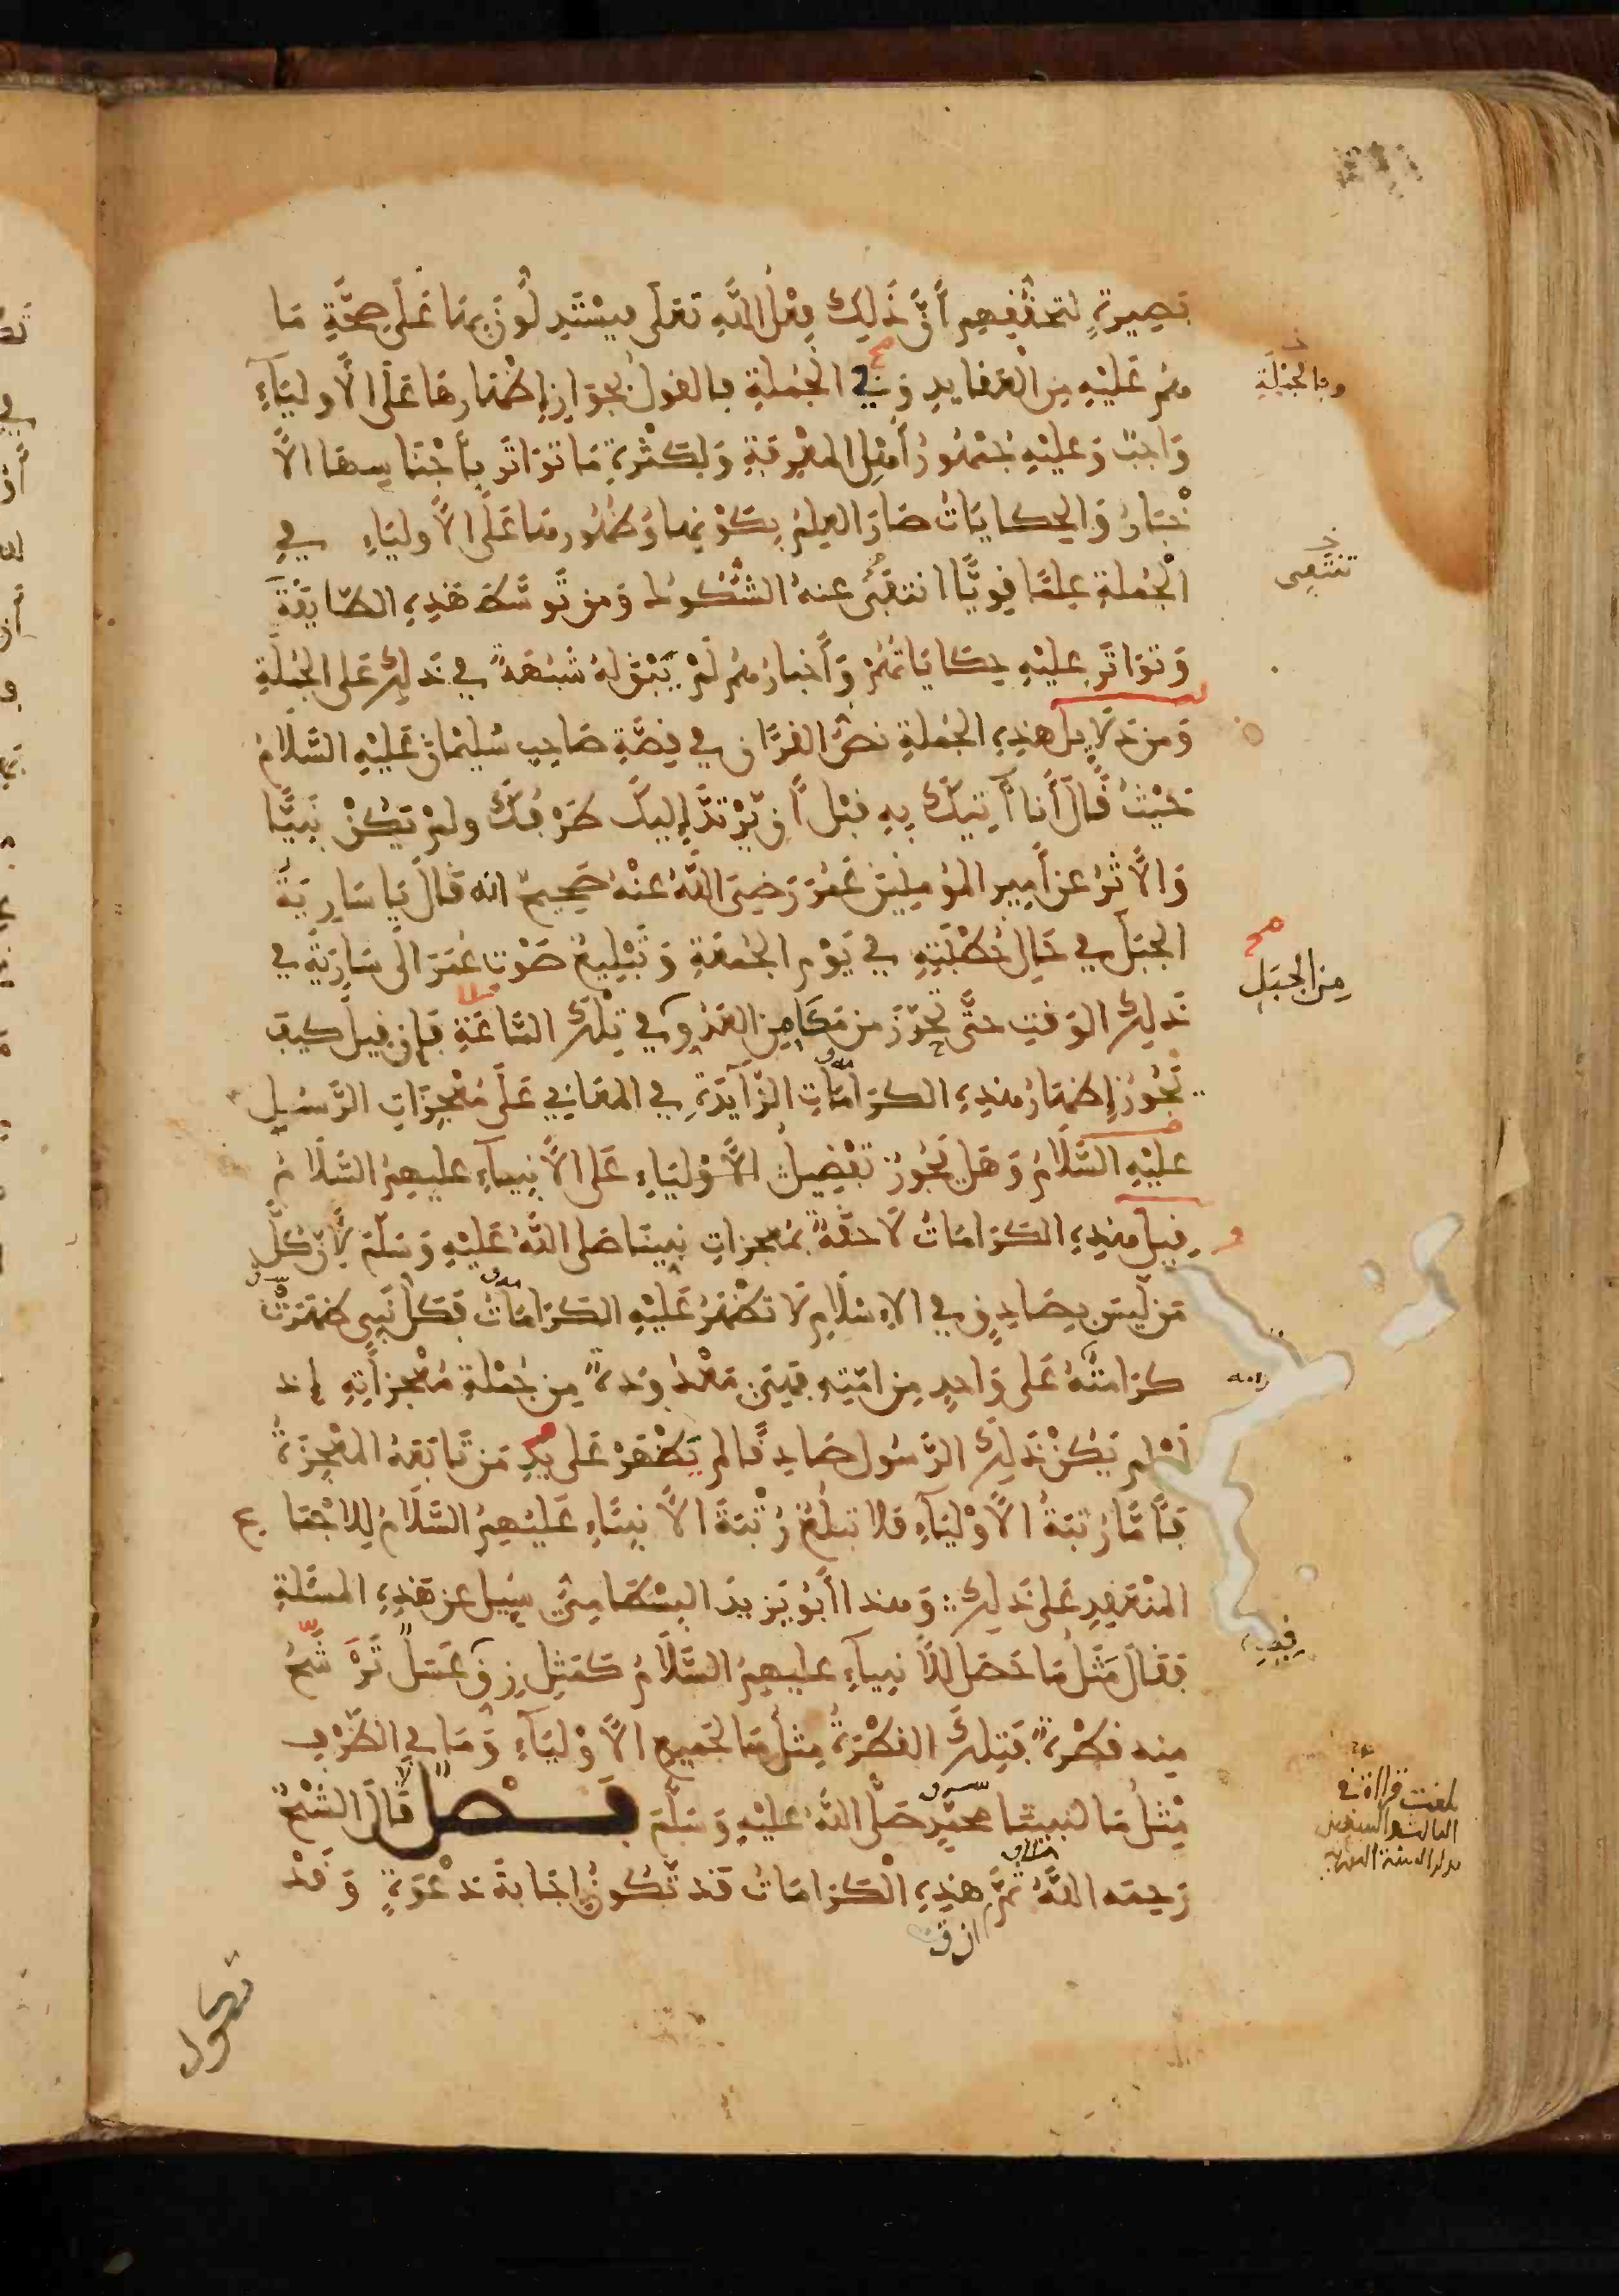 بَصِيرَةٍ لتحقّقهم أَنَّ ذَلِكَ فِعْلُ اللَّهِ تَعَلَى فيَسْتَدِلُّونَ بِهَا عَلَى صِحَّةِ مَا
هُم عَلَيْهِ مِنَ الْعَقَايِدِ وَفِي الْجُمْلَةِ فالقولُ بِجَوَازِ إِظْهَارِهَا عَلَى الْأَولِيَآءِ
وَاجبٌ وَعَلَيْهِ جُمْهُورُ أَهْلِ المَعْرِفَةِ وَلِكَثْرَةِ مَا تَوَاتَرَ بِأَجْنَاسِهَا الأَ
خْبَارُ وَالحِكَايَاتُ صَارَ العِلمُ بِكَوْنِهَا وَظُهُورِهَا عَلَى الأَولِيَاءِ فِي
الْجُمْلَةِ عِلمًا قوِيًّا انتَفَى عنهُ الشُّكُوكُ وَمَن تَوسَّطَ هَذِهِ الطّايفَةَ
وَتَوَاتَرَ عَلَيْهِ حِكَايَاتُهُمْ وَأَخبَارُهُم لَمْ يَبْقَ لهُ شُبْهَةٌ في ذَلِكَ عَلى الجُمْلَةِ
وَمِن دَلَايِلِ هَذِهِ الجُمْلَةِ نصُّ القرْآنِ في قِصَّةِ صَاحِبِ سُلَيْمَانَ عَلَيْهِ السَّلَامُ
حَيْثُ قَالَ أَنا أَتِيكَ بِهِ قَبْلَ أَن يَرْتَدَّ إِلَيكَ طَرْفُكَ ولمْ يَكُنْ نَبِيًّا
وَالْأَثَرُ عن أَمِيرِ المؤمِنِينَ عُمَرَ رَضِيَ اللَّهُ عَنْهُ صَحِيحٌ انه قَالَ يَا سَارِيَةُ
الجَبَلَ في حَالِ خُطْبَتِهِ في يَوْمِ الجُمُعَةِ وَتَبْلِيغُ صَوْتِ عُمَرَ الَى سَارِيَةَ في
ذَلِكَ الوَقتِ حتَّى تَحَرَّزَ من مَكَامِنِ العَدُوِّ في تِلْكَ السَّاعَةِ فَإِن قِيلَ كيفَ
تَجُوزُ إِظْهَارُ هذِهِ الكرَامَاتِ الزَّآيِدَةِ في المعَانِي عَلَى مُعْجِزَاتِ الرُّسُلِ
عَلَيْهِ السَّلَامُ وَهَل يَجُوزُ تَفْضِيلُ الأَوْلِيَاءِ عَلى الأَنبِيآءِ عليهِمُ السَّلَامُ
قِيلَ هذِهِ الكَرَامَاتُ لَاحقَةٌ بِمُعجزاتِ نبِينَا صَلى اللَّهُ عَلَيْهِ وَسَلّمَ لِأَنَّ كُلَّ
مَن لَيسَ بِصَادِقٍ في الإِسْلَامِ لَا تَظْهَرُ عَلَيْهِ الكَرَامَاتُ فَكُلُّ نَبِي ظَهَرَتْ
كرَامَتُهُ عَلى وَاحِدٍ مِن امّتِهِ فَهِيَ مَعْدُودَةٌ مِن جُمْلَةِ مُعْجِزَاتِهِ إِذ
لَوْ لم يَكُنْ ذَلِكَ الرَّسُولُ صَادِقًا لم يَظْهَرْ عَلى يَدِ مَن تَابَعَهُ المُعْجِزَةُ
فَأَمَّا رُتبَةُ الأَوْلِيَآءِ فَلا تبلُغُ رُتْبَةَ الأَنبِيَاءِ عَلَيْهِمُ السَّلَامُ لِلاجْمَا ع
المُنْعَقِدِ عَلى ذَلِكَ وَهذا أَبُو يَزِيدَ البِسْطَامِيُّ سُيِلَ عن هَذِهِ المسْئَلةِ
فقَالَ مَثَلُ مَا حَصَلَ للأَنبِيآءِ عليهِمُ السَّلَامُ كَمَثَلِ زِقِّ عَسَلٍ تَرَشَّحُ
مِنه قطْرَةٌ فَتِلكَ القَطْرَةُ مِثْلُ مَا لجَمِيعِ الأَوْلِيَآءِ وَمَا في الظَّرْفِ
مِثْلُ مَا لنبِينَا محمَّدٍ صَلَّى اللَّهُ عَلَيْهِ وَسَلَّمَ فَصْلٌ قَالَ الشَّيْخُ
رَحِمَه اللَّهُ ثُمَّ هذِهِ الْكَرَامَاتُ قَد تَكُونُ اِجَابَةَ دَعْوَةٍ وَقَدْ
تكون
وبالجُمْلَةِ
تنتفى
مِنَ الجَبَلِ
بلغت قراءة في